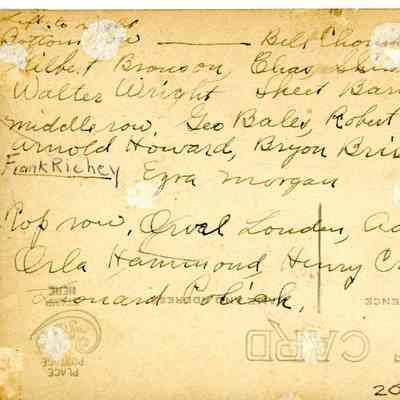 Left to right
Bottom row ——— Belt
Gilbert Bronson, Chas
Walter Wright Skeet Bar
middle row, Geo Bales, Robert
Arnold Howard, Bryon Bri
Frank Richey Ezra Morgan
Top row, Orval Louden, Ad
Orla Hammond, Henry C
Leonard
PLACE POSTAGE HERE
CARD
20